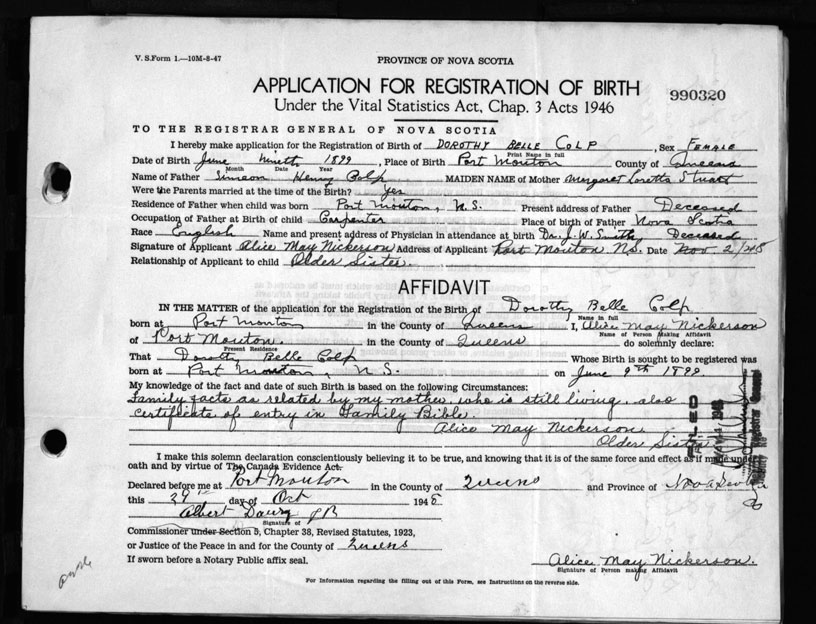 V. S. Form 1.—10M-8-47
PROVINCE OF NOVA SCOTIA
APPLICATION FOR REGISTRATION OF BIRTH
990320
Under the Vital Statistics Act, Chap. 3 Acts 1946
TO THE REGISTRAR GENERAL OF NOVA SCOTIA
I hereby make application for the Registration of Birth of DOROTHY BELLE COLP, Sex FEMALE
Print Name in full
Date of Birth June Nineth 1899, Place of Birth Port Mouton County of Queens
Month Date Year
Name of Father Simeon Henry Colp MAIDEN NAME of Mother Margaret Loretta Stuart
Were the Parents married at the time of the Birth? Yes
Residence of Father when child was born Port Mouton, N.S. Present address of Father Deceased
Occupation of Father at Birth of child Carpenter Place of birth of Father Nova Scotia
Race English Name and present address of Physician in attendance at birth Dr. J. W. Smith Deceased
Signature of Applicant Alice May Nickerson Address of Applicant Port Mouton N.S. Date Nov 2/48
Relationship of Applicant to child Older Sister.
AFFIDAVIT
IN THE MATTER of the application for the Registration of the Birth of Dorothy Belle Colp
Name in full
born at Port Mouton in the County of Queens I, Alice May Nickerson
Name of Person Making Affidavit
of Port Mouton. in the County of Queens do solemnly declare:
Present Residence
That Dorothy Belle Colp Whose Birth is sought to be registered was
born at Port Mouton, N.S. on June 9th 1899.
My knowledge of the fact and date of such Birth is based on the following Circumstances:
Family facts as related by my mother, who is still living, also
certificate of entry in Family Bible.
Alice May Nickerson
Older Sister
I make this solemn declaration conscientiously believing it to be true, and knowing that it is of the same force and effect as if made under
oath and by virtue of The Canada Evidence Act.
Declared before me at Port Mouton in the County of Queens and Province of Nova Scotia
this 29th day of Oct 1948
Albert Daury JP
Signature of
Commissioner under Section 5, Chapter 38, Revised Statutes, 1923,
or Justice of the Peace in and for the County of Queens
If sworn before a Notary Public affix seal.
Alice May Nickerson.
Signature of Person making Affidavit
For Information regarding the filling out of this Form, see Instructions on the reverse side.